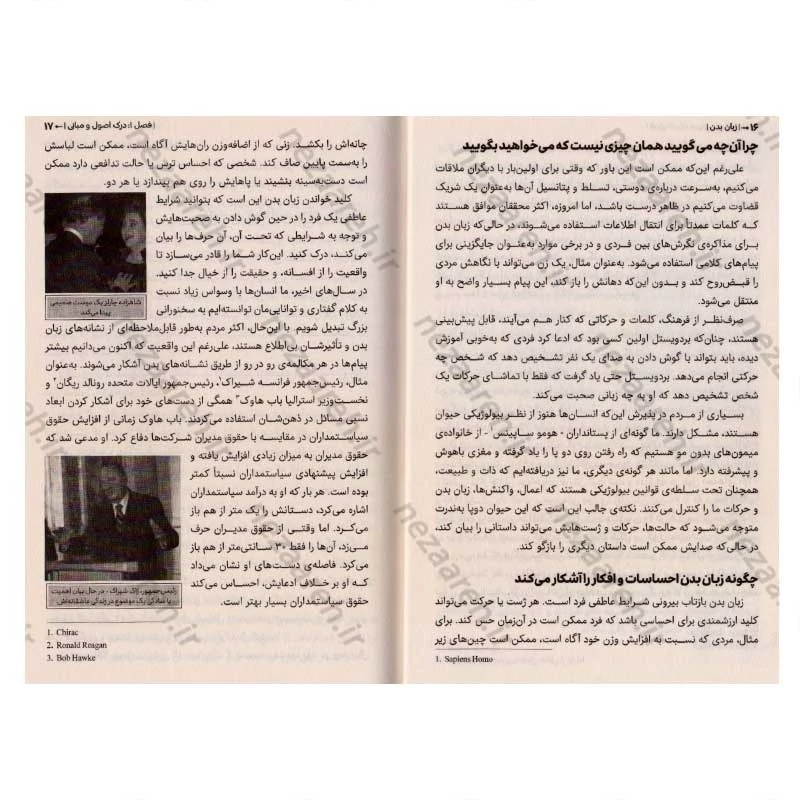 ۱۶ ← | زبان بدن |
چرا آن‌چه می‌گویید همان چیزی نیست که می‌خواهید بگویید
علی‌رغم این‌که ممکن است این باور که وقتی برای اولین‌بار با دیگران ملاقات
می‌کنیم، به‌سرعت درباره‌ی دوستی، تسلط و پتانسیل آن‌ها به‌عنوان یک شریک
قضاوت می‌کنیم در ظاهر درست باشد، اما امروزه، اکثر محققان موافق هستند
که کلمات عمدتاً برای انتقال اطلاعات استفاده می‌شوند، در حالی‌که زبان بدن
برای مذاکره‌ی نگرش‌های بین فردی و در برخی موارد به‌عنوان جایگزینی برای
پیام‌های کلامی استفاده می‌شود. به‌عنوان مثال، یک زن می‌تواند با نگاهش مردی
را قبض‌روح کند و بدون این‌که دهانش را باز کند، این پیام بسیار واضح به او
منتقل می‌شود.
صرف‌نظر از فرهنگ، کلمات و حرکاتی که کنار هم می‌آیند، قابل پیش‌بینی
هستند، چنان‌که بردویستل اولین کسی بود که ادعا کرد فردی که به‌خوبی آموزش
دیده، باید بتواند با گوش دادن به صدای یک نفر تشخیص دهد که شخص چه
حرکتی انجام می‌دهد. بردویستل حتی یاد گرفت که فقط با تماشای حرکات یک
شخص تشخیص دهد که او به چه زبانی صحبت می‌کند.
بسیاری از مردم در پذیرش این‌که انسان‌ها هنوز از نظر بیولوژیکی حیوان
هستند، مشکل دارند. ما گونه‌ای از پستانداران - هومو ساپینس - از خانواده‌ی
میمون‌های بدون مو هستیم که راه رفتن روی دو پا را یاد گرفته و مغزی باهوش
و پیشرفته دارد. اما مانند هر گونه‌ی دیگری، ما نیز دریافته‌ایم که ذات و طبیعت،
همچنان تحت سلطه‌ی قوانین بیولوژیکی هستند که اعمال، واکنش‌ها، زبان بدن
و حرکات ما را کنترل می‌کنند. نکته‌ی جالب این است که این حیوان دوپا به‌ندرت
متوجه می‌شود که حالت‌ها، حرکات و ژست‌هایش می‌تواند داستانی را بیان کند،
در حالی‌که صدایش ممکن است داستان دیگری را بازگو کند.
چگونه زبان بدن احساسات و افکار را آشکار می‌کند
زبان بدن بازتاب بیرونی شرایط عاطفی فرد است. هر ژست یا حرکت می‌تواند
کلید ارزشمندی برای احساسی باشد که فرد ممکن است در آن‌زمان حس کند. برای
مثال، مردی که نسبت به افزایش وزن خود آگاه است، ممکن است چین‌های زیر
1. Sapiens Homo
| فصل ۱: درک اصول و مبانی | ← ۱۷
چانه‌اش را بکشد. زنی که از اضافه‌وزن ران‌هایش آگاه است، ممکن است لباسش
را به‌سمت پایین صاف کند. شخصی که احساس ترس یا حالت تدافعی دارد ممکن
است دست‌به‌سینه بنشیند یا پاهایش را روی هم بیندازد یا هر دو.
کلید خواندن زبان بدن این است که بتوانید شرایط
عاطفی یک فرد را در حین گوش دادن به صحبت‌هایش
و توجه به شرایطی که تحت آن، آن حرف‌ها را بیان
می‌کند، درک کنید. این‌کار شما را قادر می‌سازد تا
واقعیت را از افسانه، و حقیقت را از خیال جدا کنید.
در سال‌های اخیر، ما انسان‌ها با وسواس زیاد نسبت
به کلام گفتاری و توانایی‌مان توانسته‌ایم به سخنورانی
شاهزاده چارلز یک دوست صمیمی
پیدا می‌کند
بزرگ تبدیل شویم. با این‌حال، اکثر مردم به‌طور قابل‌ملاحظه‌ای از نشانه‌های زبان
بدن و تأثیرشان بی‌اطلاع هستند، علی‌رغم این واقعیت که اکنون می‌دانیم بیشتر
پیام‌ها در هر مکالمه‌ی رو در رو از طریق نشانه‌های بدن آشکار می‌شوند. به‌عنوان
مثال، رئیس‌جمهور فرانسه شیراک¹، رئیس‌جمهور ایالات متحده رونالد ریگان² و
نخست‌وزیر استرالیا باب هاوک³ همگی از دست‌های خود برای آشکار کردن ابعاد
نسبی مسائل در ذهن‌شان استفاده می‌کردند. باب هاوک زمانی از افزایش حقوق
سیاستمداران در مقایسه با حقوق مدیران شرکت‌ها دفاع کرد. او مدعی شد که
حقوق مدیران به میزان زیادی افزایش یافته و
افزایش پیشنهادی سیاستمداران نسبتاً کمتر
بوده است. هر بار که او به درآمد سیاستمداران
اشاره می‌کرد، دستانش را یک متر از هم باز
می‌کرد. اما وقتی از حقوق مدیران حرف
می‌زد، آن‌ها را فقط ۳۰ سانتی‌متر از هم باز
می‌کرد. فاصله‌ی دست‌های او نشان می‌داد
که او بر خلاف ادعایش، احساس می‌کند
حقوق سیاستمداران بسیار بهتر است.
رئیس‌جمهور، ژاک شیراک - در حال بیان اهمیت
یک موضوع در زندگی عاشقانه‌اش
1. Chirac
2. Ronald Reagan
3. Bob Hawke
nezaareh.ir